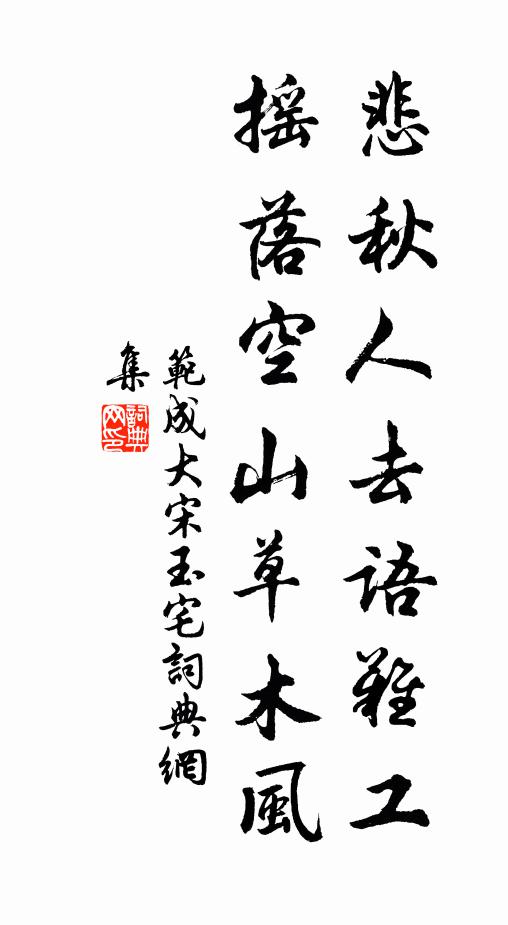 悲秋人去語難工
搖落空山草木風
範成大宋玉宅詞典網
集
詞典网印